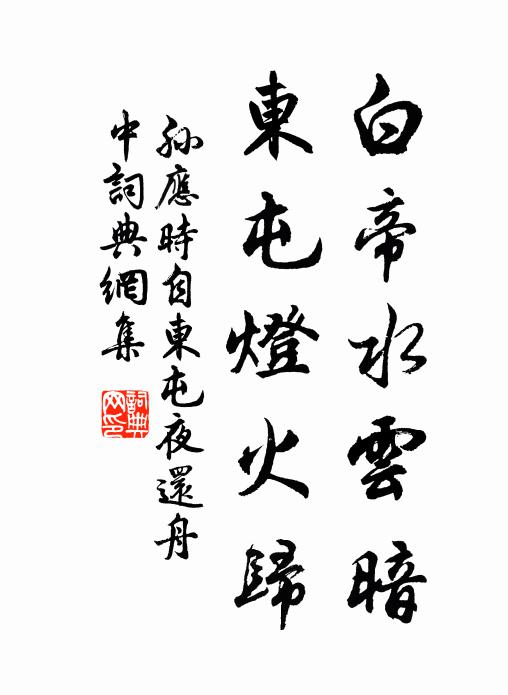 白帝水雲暗
東屯燈火歸
孫應時自東屯夜還舟
中詞典網集
詞典
网印